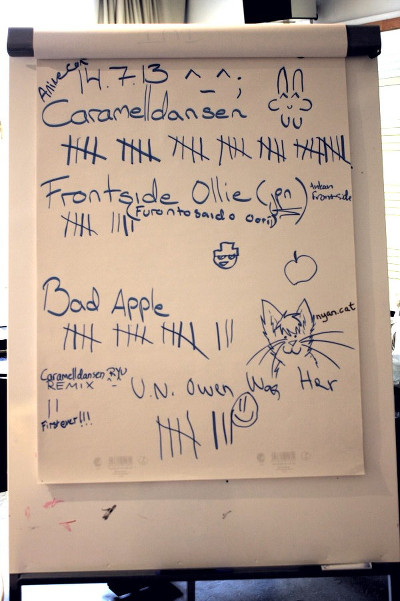 AnimeCon 14.7.13 ^_^;
Caramelldansen
Frontside Ollie (jpn)
(Furontosaido Oorii)
frontside
Bad Apple
nyan.cat
Caramelldansen RYU
REMIX
U.N. Owen Was Her
First ever!!!